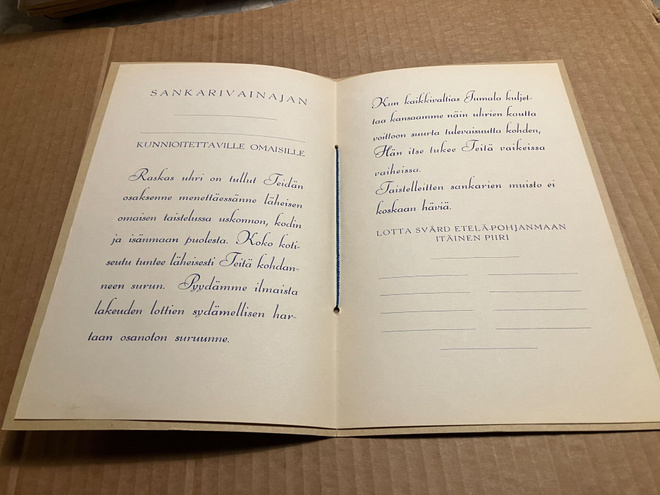 SANKARIVAINAJAN
KUNNIOITETTAVILLE OMAISILLE
Raskas uhri on tullut Teidän
osaksenne menettäessänne läheisen
omaisen taistelussa uskonnon, kodin
ja isänmaan puolesta. Koko koti-
seutu tuntee läheisesti Teitä kohdan-
neen surun. Pyydämme ilmaista
lakeuden lottien sydämellisen har-
taan osanoton suruunne.
Kun kaikkivaltias Jumala kuljet-
taa kansaamme näin uhrien kautta
voittoon suurta tulevaisuutta kohden,
Hän itse tukee Teitä vaikeissa
vaiheissa.
Taistelleitten sankarien muisto ei
koskaan häviä.
LOTTA SVÄRD ETELÄ-POHJANMAAN
ITÄINEN PIIRI